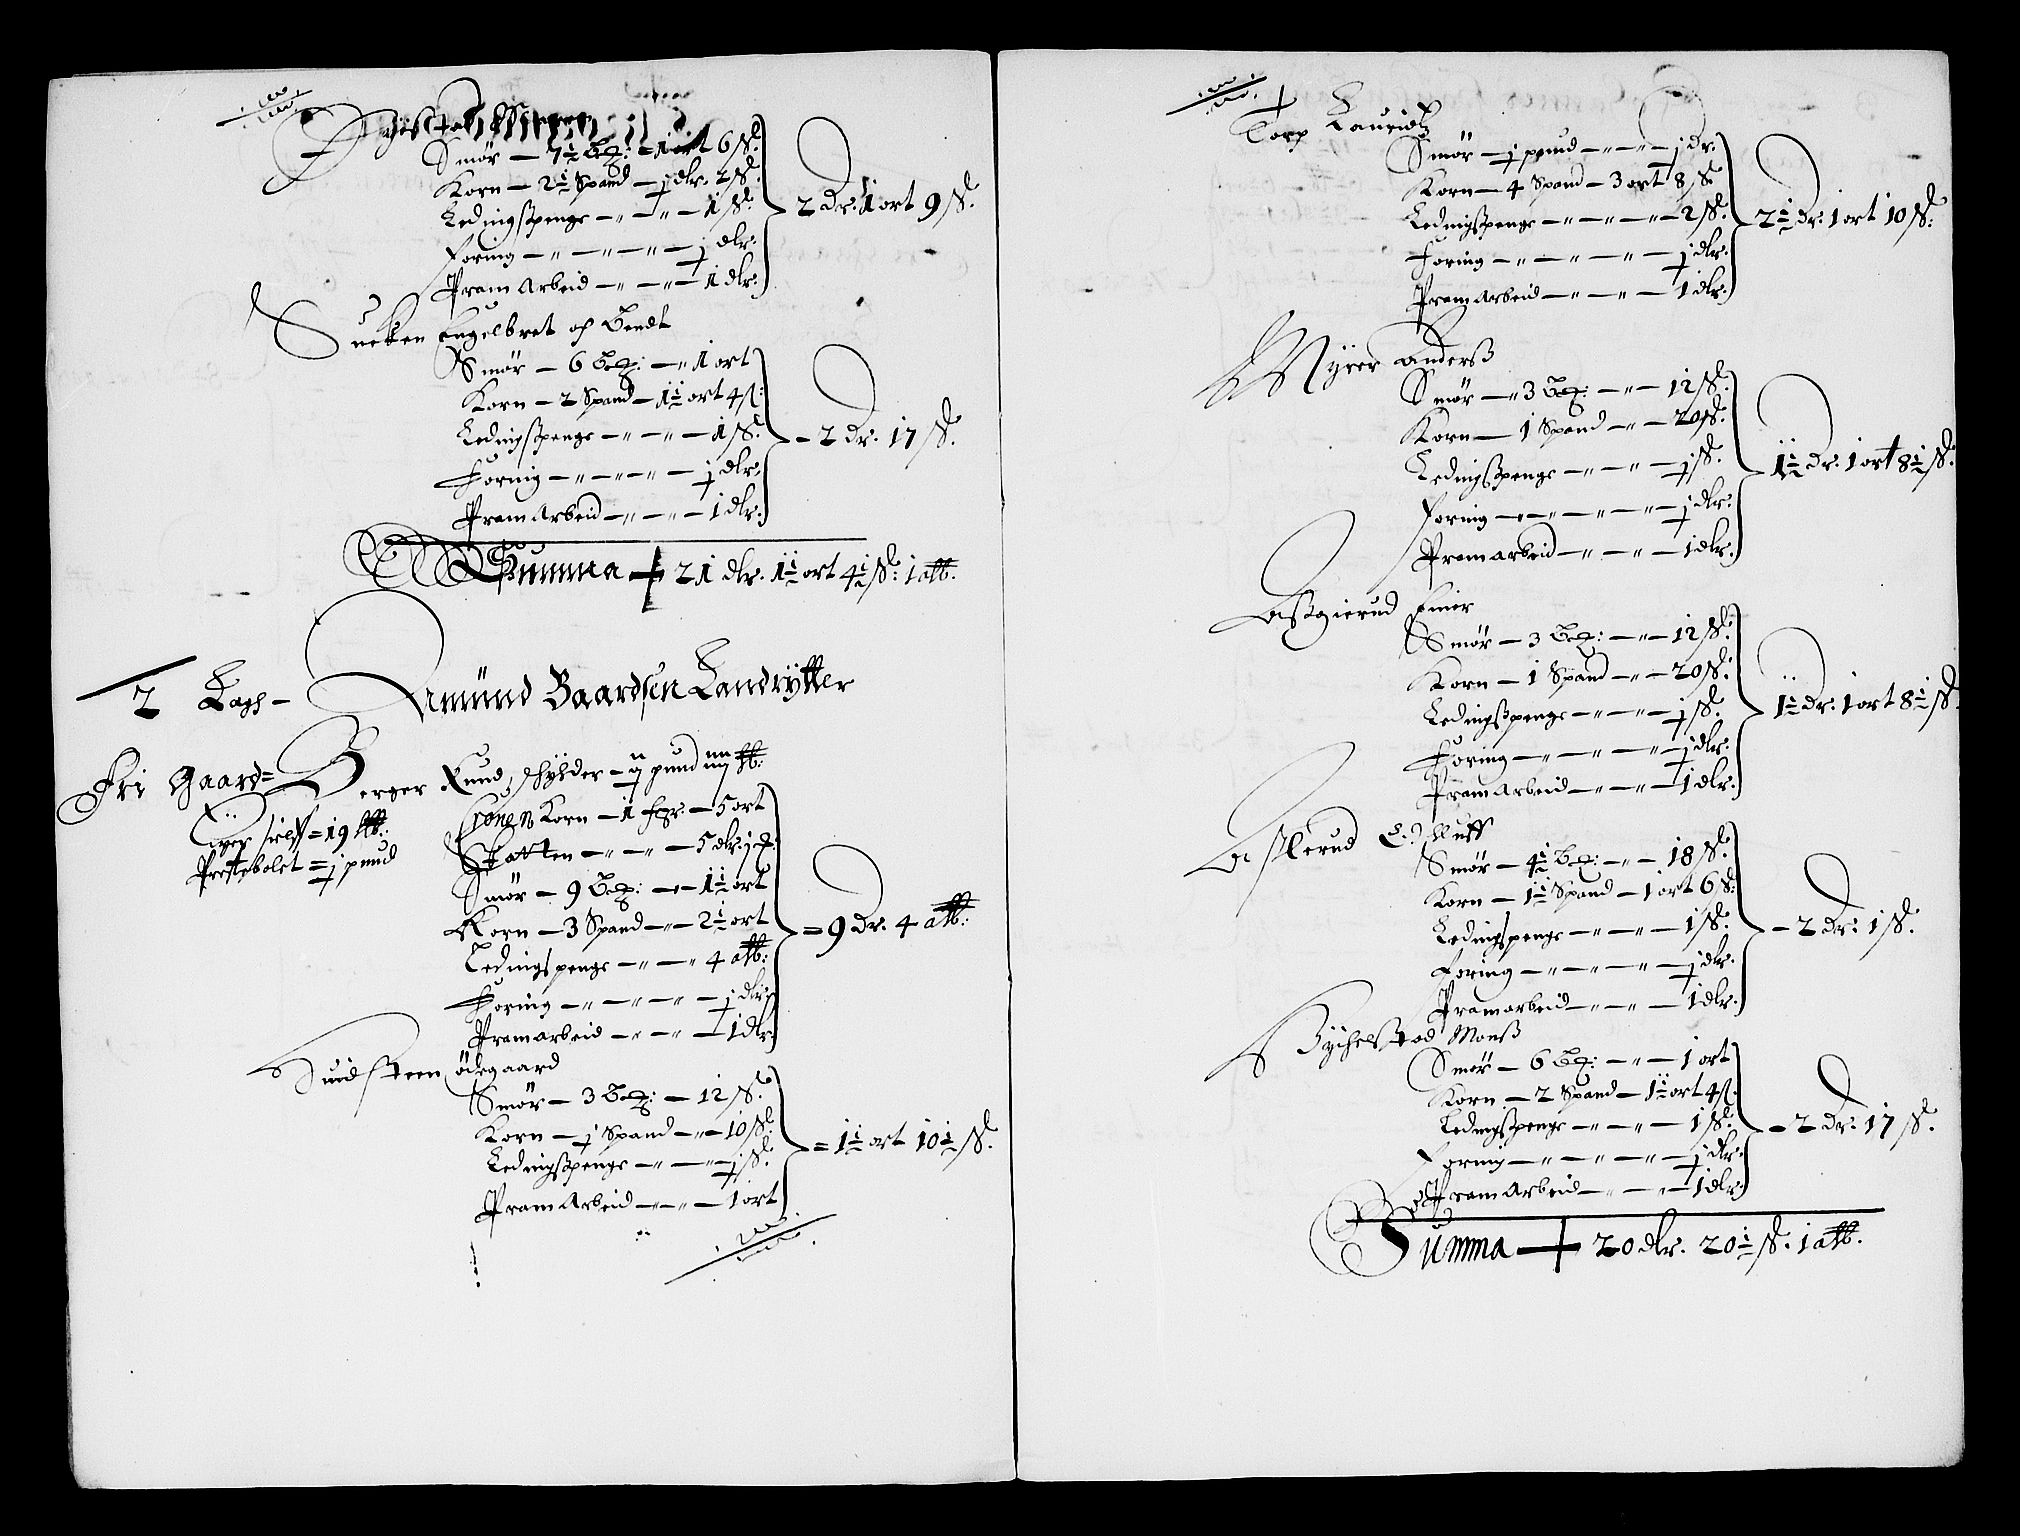 Smör — 7½ Bpd: — 1 ort 6 ß:
Korn — 2½ Spand — ½ dlr. 2 ß.
Ledingßpenge — „ — „ — 1 ß.
Foring — „ — „ — „ — ½ dlr.
Pram Arbeid — „ — „ — 1 dlr.
2 Dr. 1 ort 9 ß.
Sueken Engelbret och Bendt
Smör — 6 Bpd: — „ 1 ort
Korn — 2 Spand — 1½ ort 4 ß:
Ledingßpenge — „ — „ — 1 ß.
Foring — „ — „ — „ — ½ dlr.
Pram Arbeid — „ — „ — 1 dlr.
- 2 Dr. 17 ß.
Summa — 21 dlr. 1½ ort 4½ ß: 1 alb.
2 Lagh — Amünd Baardsen Landrÿtter
Fri Gaard = Berger Rund, schylder — pund
= 19
Prestebolet = ½ pund
Cronens Korn — 1 fgr. — 5 ort
Skatten — „ — „ — 5 dlr. ½
Smör — 9 Bpd: — „ — 1½ ort
Korn — 3 Spand — „ — 2½ ort
Ledingspenge — „ — „ 4 alb:
Foring — „ — „ — „ — ½ dlr
Pramarbeid — „ — „ — 1 dlr.
= 9 Dr. 4 alb:
Huidsteen ödegaard
Smör — 3 Bpd: — 12 ß.
Korn — ½ Spand — „ — 10 ß:
Ledingßpenge — „ — „ — ½ ß.
Pram Arbeid — „ — „ — 1 ort
= 1½ ort 10½ ß.
Torp Lauridtz
Smör — ½ pund — „ — „ — ½ dr.
Korn — 4 Spand — 3 ort 8 ß
Ledingßpenge — „ — „ — „ — 2 ß.
Foring — „ — „ — „ — ½ dlr.
Pramarbeid — „ — „ — 1 dlr.
2½ dr: 1 ort 10 ß:
Myrer Anderß
Smör — „ 3 Bpd: — „ — 12 ß.
Korn — 1 Spand — „ — 20 ß.
Ledingßpenge — „ — „ — ½ ß.
Foring — „ — „ — „ — ½ dlr.
Pramarbeid — „ — „ — 1 dlr.
1½ dr. 1 ort 8½ ß.
Aßgierud Einer
Smör — 3 Bpd: — „ — 12 ß.
Korn — 1 Spand — „ — 20 ß.
Ledingßpenge — „ — „ — ½ ß.
Foring — „ — „ — „ — ½ dlr.
Pramarbeid — „ — „ — 1 dlr.
1½ dr: 1 ort 8½ ß.
Aslerud
Smör — 4½ Bpd: — „ — 18 ß.
Korn — 1½ Spand — 1 ort 6 ß:
Ledingspenge — „ — „ — 1 ß.
Foring — „ — „ — „ — ½ dlr.
Pramarbeid — „ — „ — 1 dlr.
- 2 Dr: 1 ß.
Monß
Smör — 6 Bpd: — „ — 1 ort
Korn — 2 Spand — 1½ ort 4 ß.
Ledingßpenge — „ — „ — 1 ß.
Foring — „ — „ — „ — ½ dlr.
Pram Arbeid — „ — „ — 1 dlr
- 2 Dr: 17 ß.
Summa — 20 dlr. 20½ ß. 1 alb.